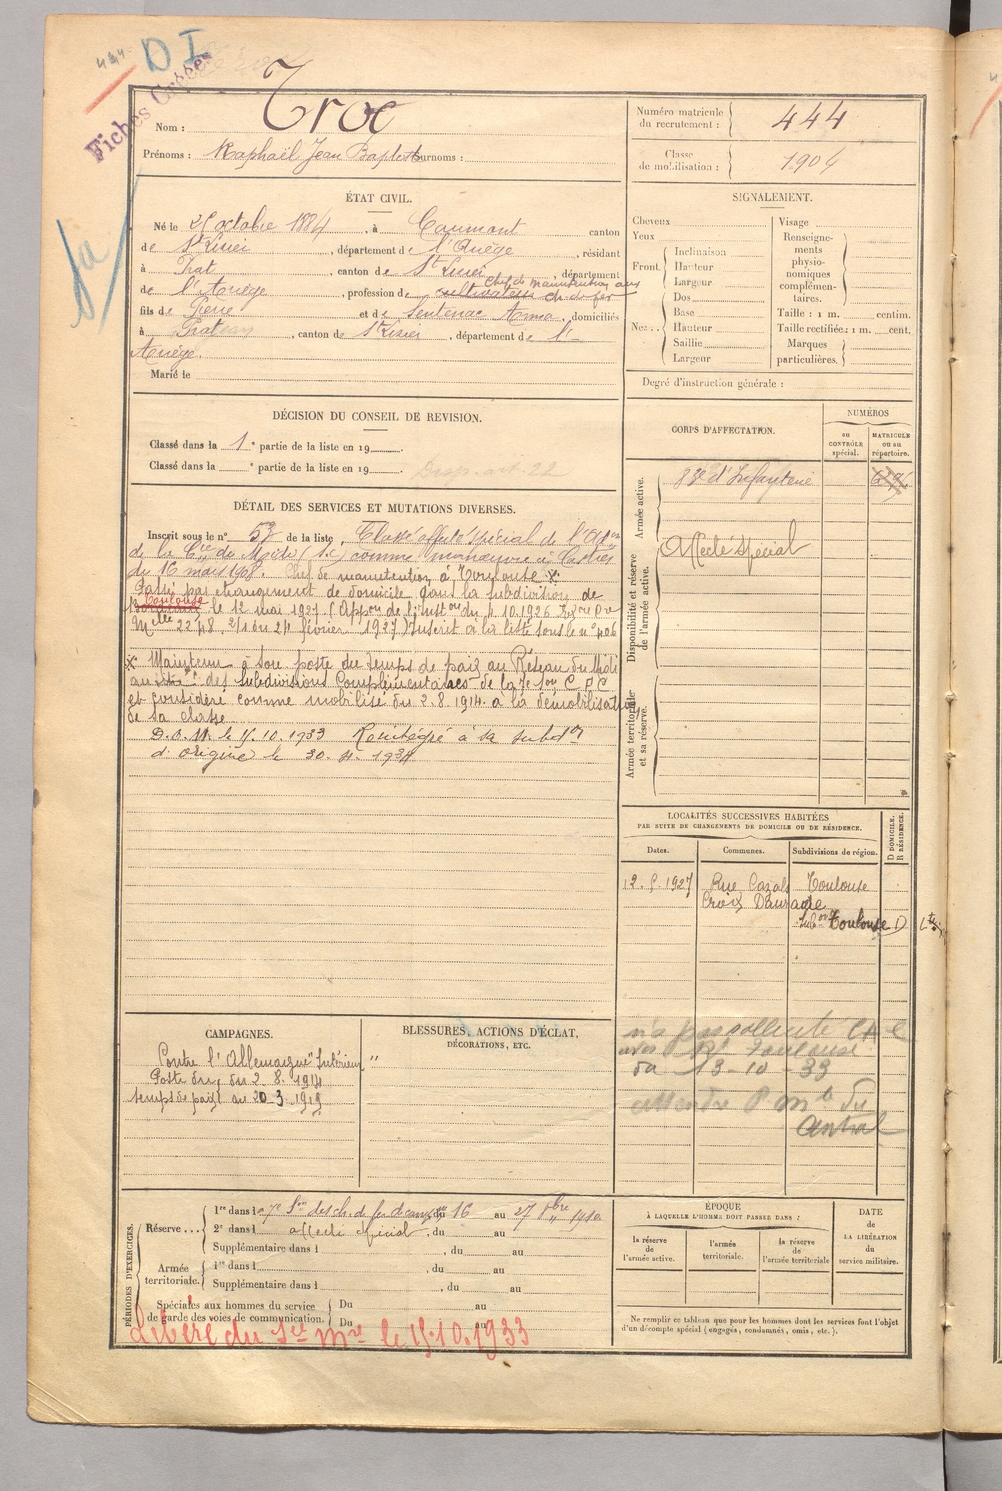 444
D I
Fiches Créées
Nom : Troc
Prénoms : Raphaël Jean Baptiste Surnoms :
Numéro matricule du recrutement : 444
Classe de mobilisation : 1904
ÉTAT CIVIL.
Né le 25 octobre 1884, à Caumont canton
de St Lizier, département de l'Ariège, résidant
à Prat, canton de St Lizier, département
Chef de manutention aux
de l'Ariège, profession de cultivateur ch. de fer
fils de Pierre et de Sentenac Anna, domiciliés
à Prat, canton de St Lizier, département de l'-
Ariège.
Marié le
SIGNALEMENT.
Cheveux
Yeux
Front
Inclinaison
Hauteur
Largeur
Nez
Dos
Base
Hauteur
Saillie
Largeur
Visage
Renseigne-
ments
physio-
nomiques
complémen-
taires.
Taille : 1 m. centim.
Taille rectifiée : 1 m. cent.
Marques
particulières.
Degré d'instruction générale :
DÉCISION DU CONSEIL DE REVISION.
Classé dans la 1e partie de la liste en 19
Classé dans la e partie de la liste en 19
Disp. art. 22
CORPS D'AFFECTATION.
NUMÉROS
au CONTRÔLE spécial.
MATRICULE ou au répertoire.
Armée active.
83e d'Infanterie
Affecté spécial
Disponibilité et réserve de l'armée active.
Armée territoriale et sa réserve.
DÉTAIL DES SERVICES ET MUTATIONS DIVERSES.
Inscrit sous le n° 57 de la liste, Classé affecté spécial de l'
de la Cie du Midi (s.t.) comme manœuvre à Castres
du 16 mars 1908. Chef de manutention à Toulouse x.
Passé par changement de domicile dans la subdivision de
Toulouse
Bordeaux le 12 mai 1927 (Appon de l'Inston du 4.10.1926
Mlle 2248 2/1 du 24 février 1927) Inscrit à la liste sous le n° 406
x Maintenu à son poste du temps de paix au Réseau du Midi
au des subdivisions Complémentaires de la 7e son C F C
et considéré comme mobilisé du 2.8.1914 à la démobilisation
de sa classe
D.O.M. le 15.10.1933 Réintégré à sa subdon
d'origine le 30.4.1934
LOCALITÉS SUCCESSIVES HABITÉES
PAR SUITE DE CHANGEMENTS DE DOMICILE OU DE RÉSIDENCE.
Dates.
Communes.
Subdivisions de région.
D DOMICILE. R RÉSIDENCE.
12.5.1927 Rue Cazals Toulouse
Croix Daurade
subon Toulouse D
CAMPAGNES.
Contre l'Allemagne "Intérieur"
Poste du du 2.8.1914
temps de paix au 20.3.1919
BLESSURES, ACTIONS D'ÉCLAT,
DÉCORATIONS, ETC.
"
n'a pas
Toulouse
du 13-10-33
attendre
Central
PÉRIODES D'EXERCICES.
Réserve
1re dans la 7e Son des ch. de fer de camp., du 16 au 27 1910
2e dans l affecté spécial, du au
Supplémentaire dans l , du au
Armée territoriale.
1re dans l , du au
Supplémentaire dans l , du au
Spéciales aux hommes du service de garde des voies de communication.
Du au
Du au
Libéré du Sce Mre le 15.10.1933
ÉPOQUE
À LAQUELLE L'HOMME DOIT PASSER DANS :
la réserve de l'armée active.
l'armée territoriale.
la réserve de l'armée territoriale
DATE de LA LIBÉRATION du service militaire.
Ne remplir ce tableau que pour les hommes dont les services font l'objet
d'un décompte spécial (engagés, condamnés, omis, etc.).